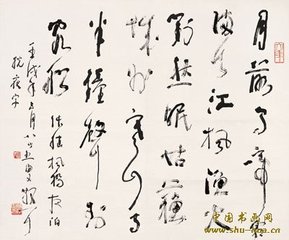 月落乌啼霜
满天江枫渔火
对愁眠姑苏
城外寒山寺
半钟声到
客船 张继枫桥夜泊
壬戌年五月八十五叟散耳
脱夜字
中国书画网